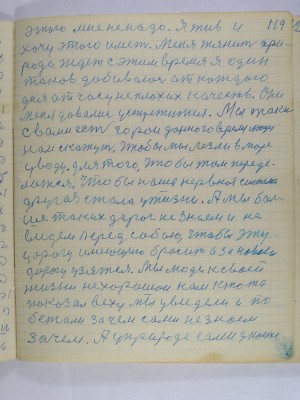 119
этого мне не надо. Я жив и
хочу этого иметь. Меня тянет при-
рода ждет с этим время я один
таков добивался от каждого
дня от часу неплохих качеств. Они
меня довели
Мы такие
с вами есть люди
нам скажут, чтобы мы лезли в море
уводу. для того, чтобы там переде-
латься, чтобы наша нервная система
другая стала у жизни. А мы бол-
ше таких дорог не знаем и не
видем перед собою, чтобы эту
дорогу имеющию бросить а за новою
дорогу взятся. Мы люди к своей
жизни нехорошой нам кто то
показал веху мы увидели и по
бежали зачем сами не знаем
зачем. А у природе сами знаете